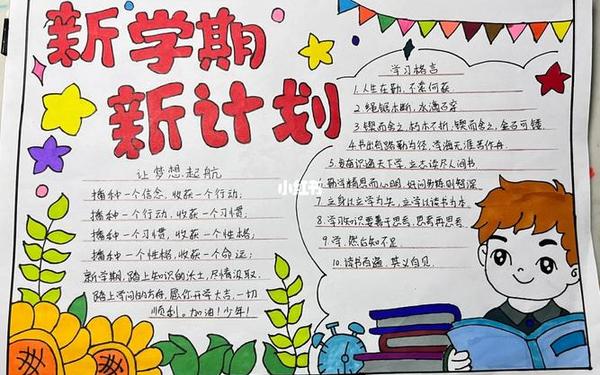 新学期
新计划
让梦想起航
播种一个信念,收获一个行动;
播种一个行动,收获一个习惯;
播种一个习惯,收获一个性格;
播种一个性格,收获一个命运;
新学期,踏上知识的沃土,尽情汲取.
踏上学问的方舟,愿你开学大吉,一切
顺利。加油!少年!
学习格言
1.人生在勤,不索何获
2.绳锯木断,水滴石穿
3.锲而舍之,朽木不折;锲而舍之,金石可镂.
4.书山有路勤为径,学海无涯苦作舟.
5.发奋识遍天下字,立志读尽人间书
6.勤学精思而心明,好问善钻则智深
7.立身以立学为先,立学以读书为本
8.学习知识要善于思考,思考再思考
9.学,然后知不足
10.读书百遍,其义自见.
小红书